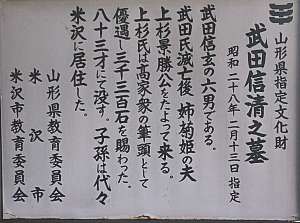 山形県指定文化財
武田信清之墓
昭和二十八年二月十三日指定
武田信玄の六男である。
武田氏滅亡後 姉菊姫の夫
上杉景勝公をたよって来る。
上杉氏は高家衆の筆頭として
優遇し三千三百石を賜わった。
八十三才にて没す。子孫は代々
米沢に居住した。
山形県教育委員会
米沢市
米沢市教育委員会